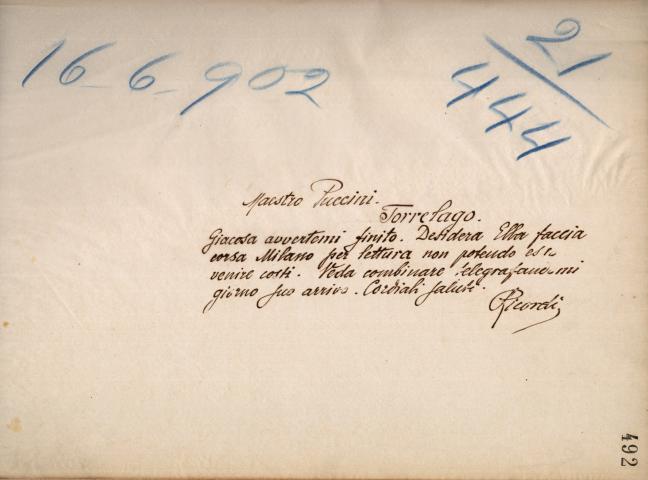 16-6-902
21
444
Maestro Puccini.
Torrelago.
Giacosa avvertemi finito. Desidera Ella faccia
corsa Milano per lettura non potendo esso
venire costì. Veda combinare telegrafandomi
giorno suo arrivo. Cordiali saluti.
Ricordi
492